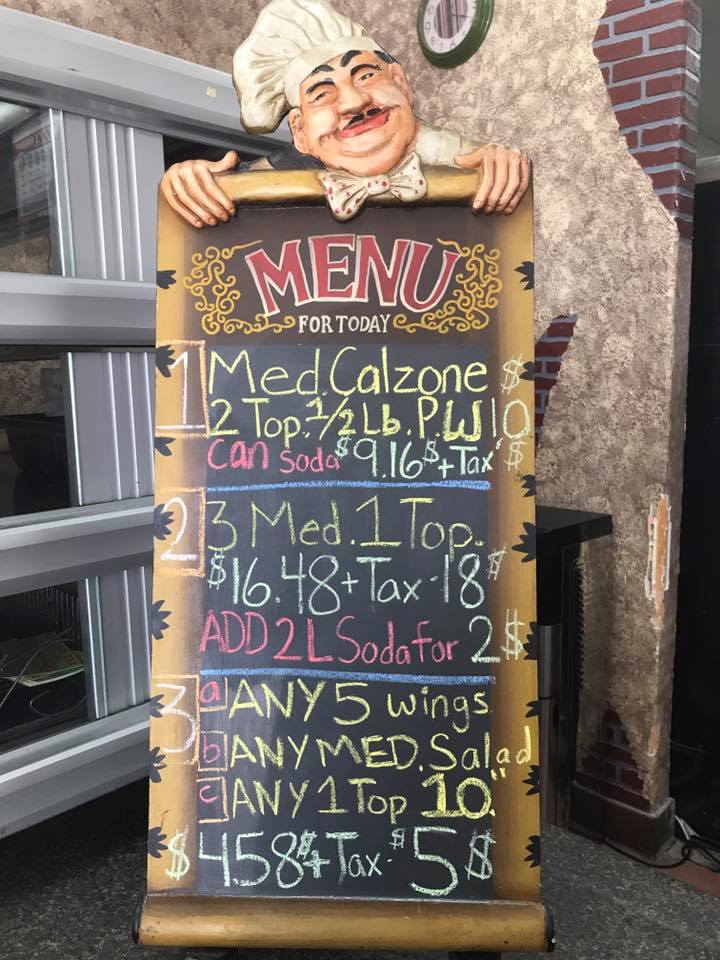 MENU
FOR TODAY
1 Med. Calzone $
2 Top. 1/2 Lb. P.W 10
can soda $9.16$ + Tax $
2 3 Med. 1 Top.
$16.48 + Tax - 18$
ADD 2L Soda for 2$
3 a ANY 5 wings
b ANY MED. Salad
c ANY 1 Top 10."
$4.58$ + Tax - $5$